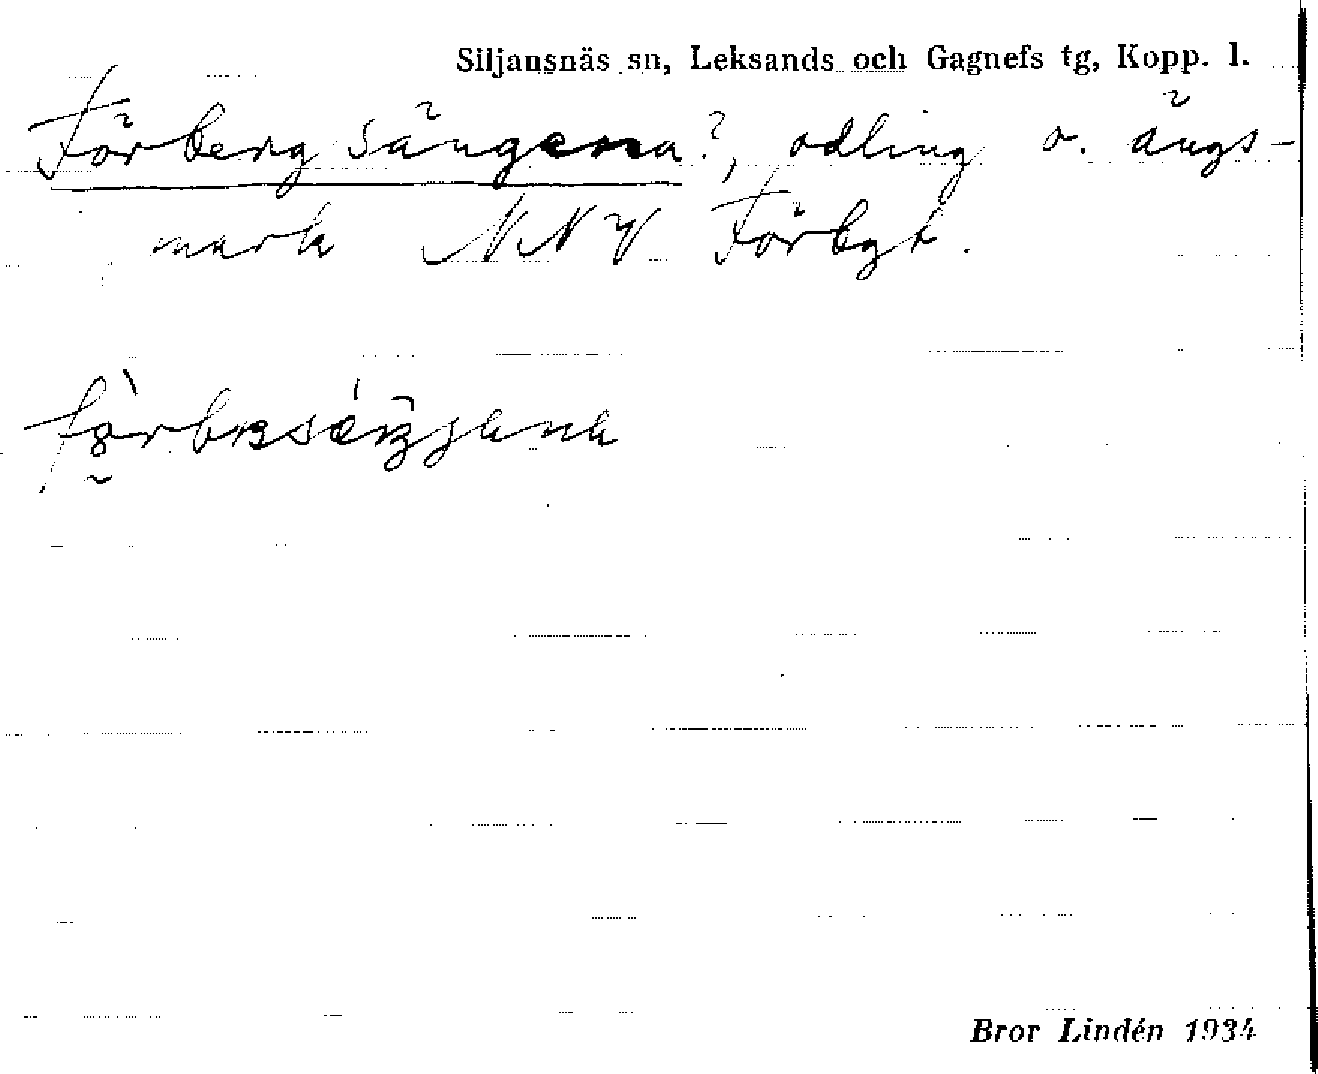 Siljansnäs sn, Leksands och Gagnefs tg, Kopp. l.
Förbergsängena?, odling o. ängs-
mark NNV Förbgt.
Bror Lindén 1934